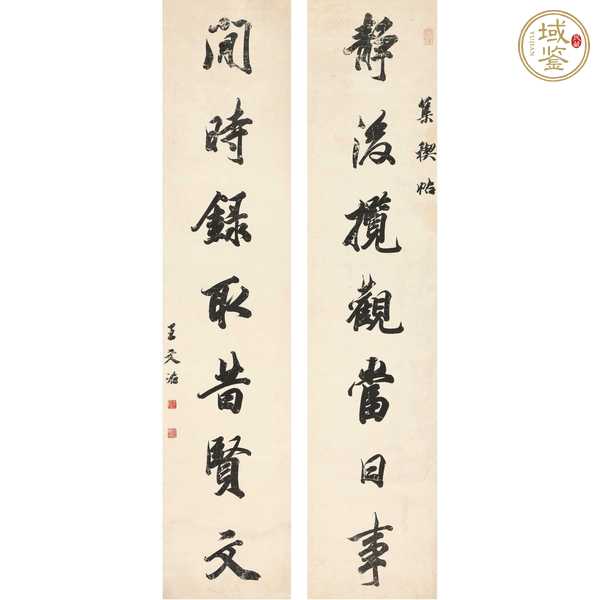 集禊帖
静後攬觀當日事
閒時録取昔賢文
王文治
域鉴
YUJIAN